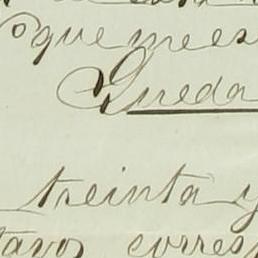 que me es
Queda
treinta y
tavos corres